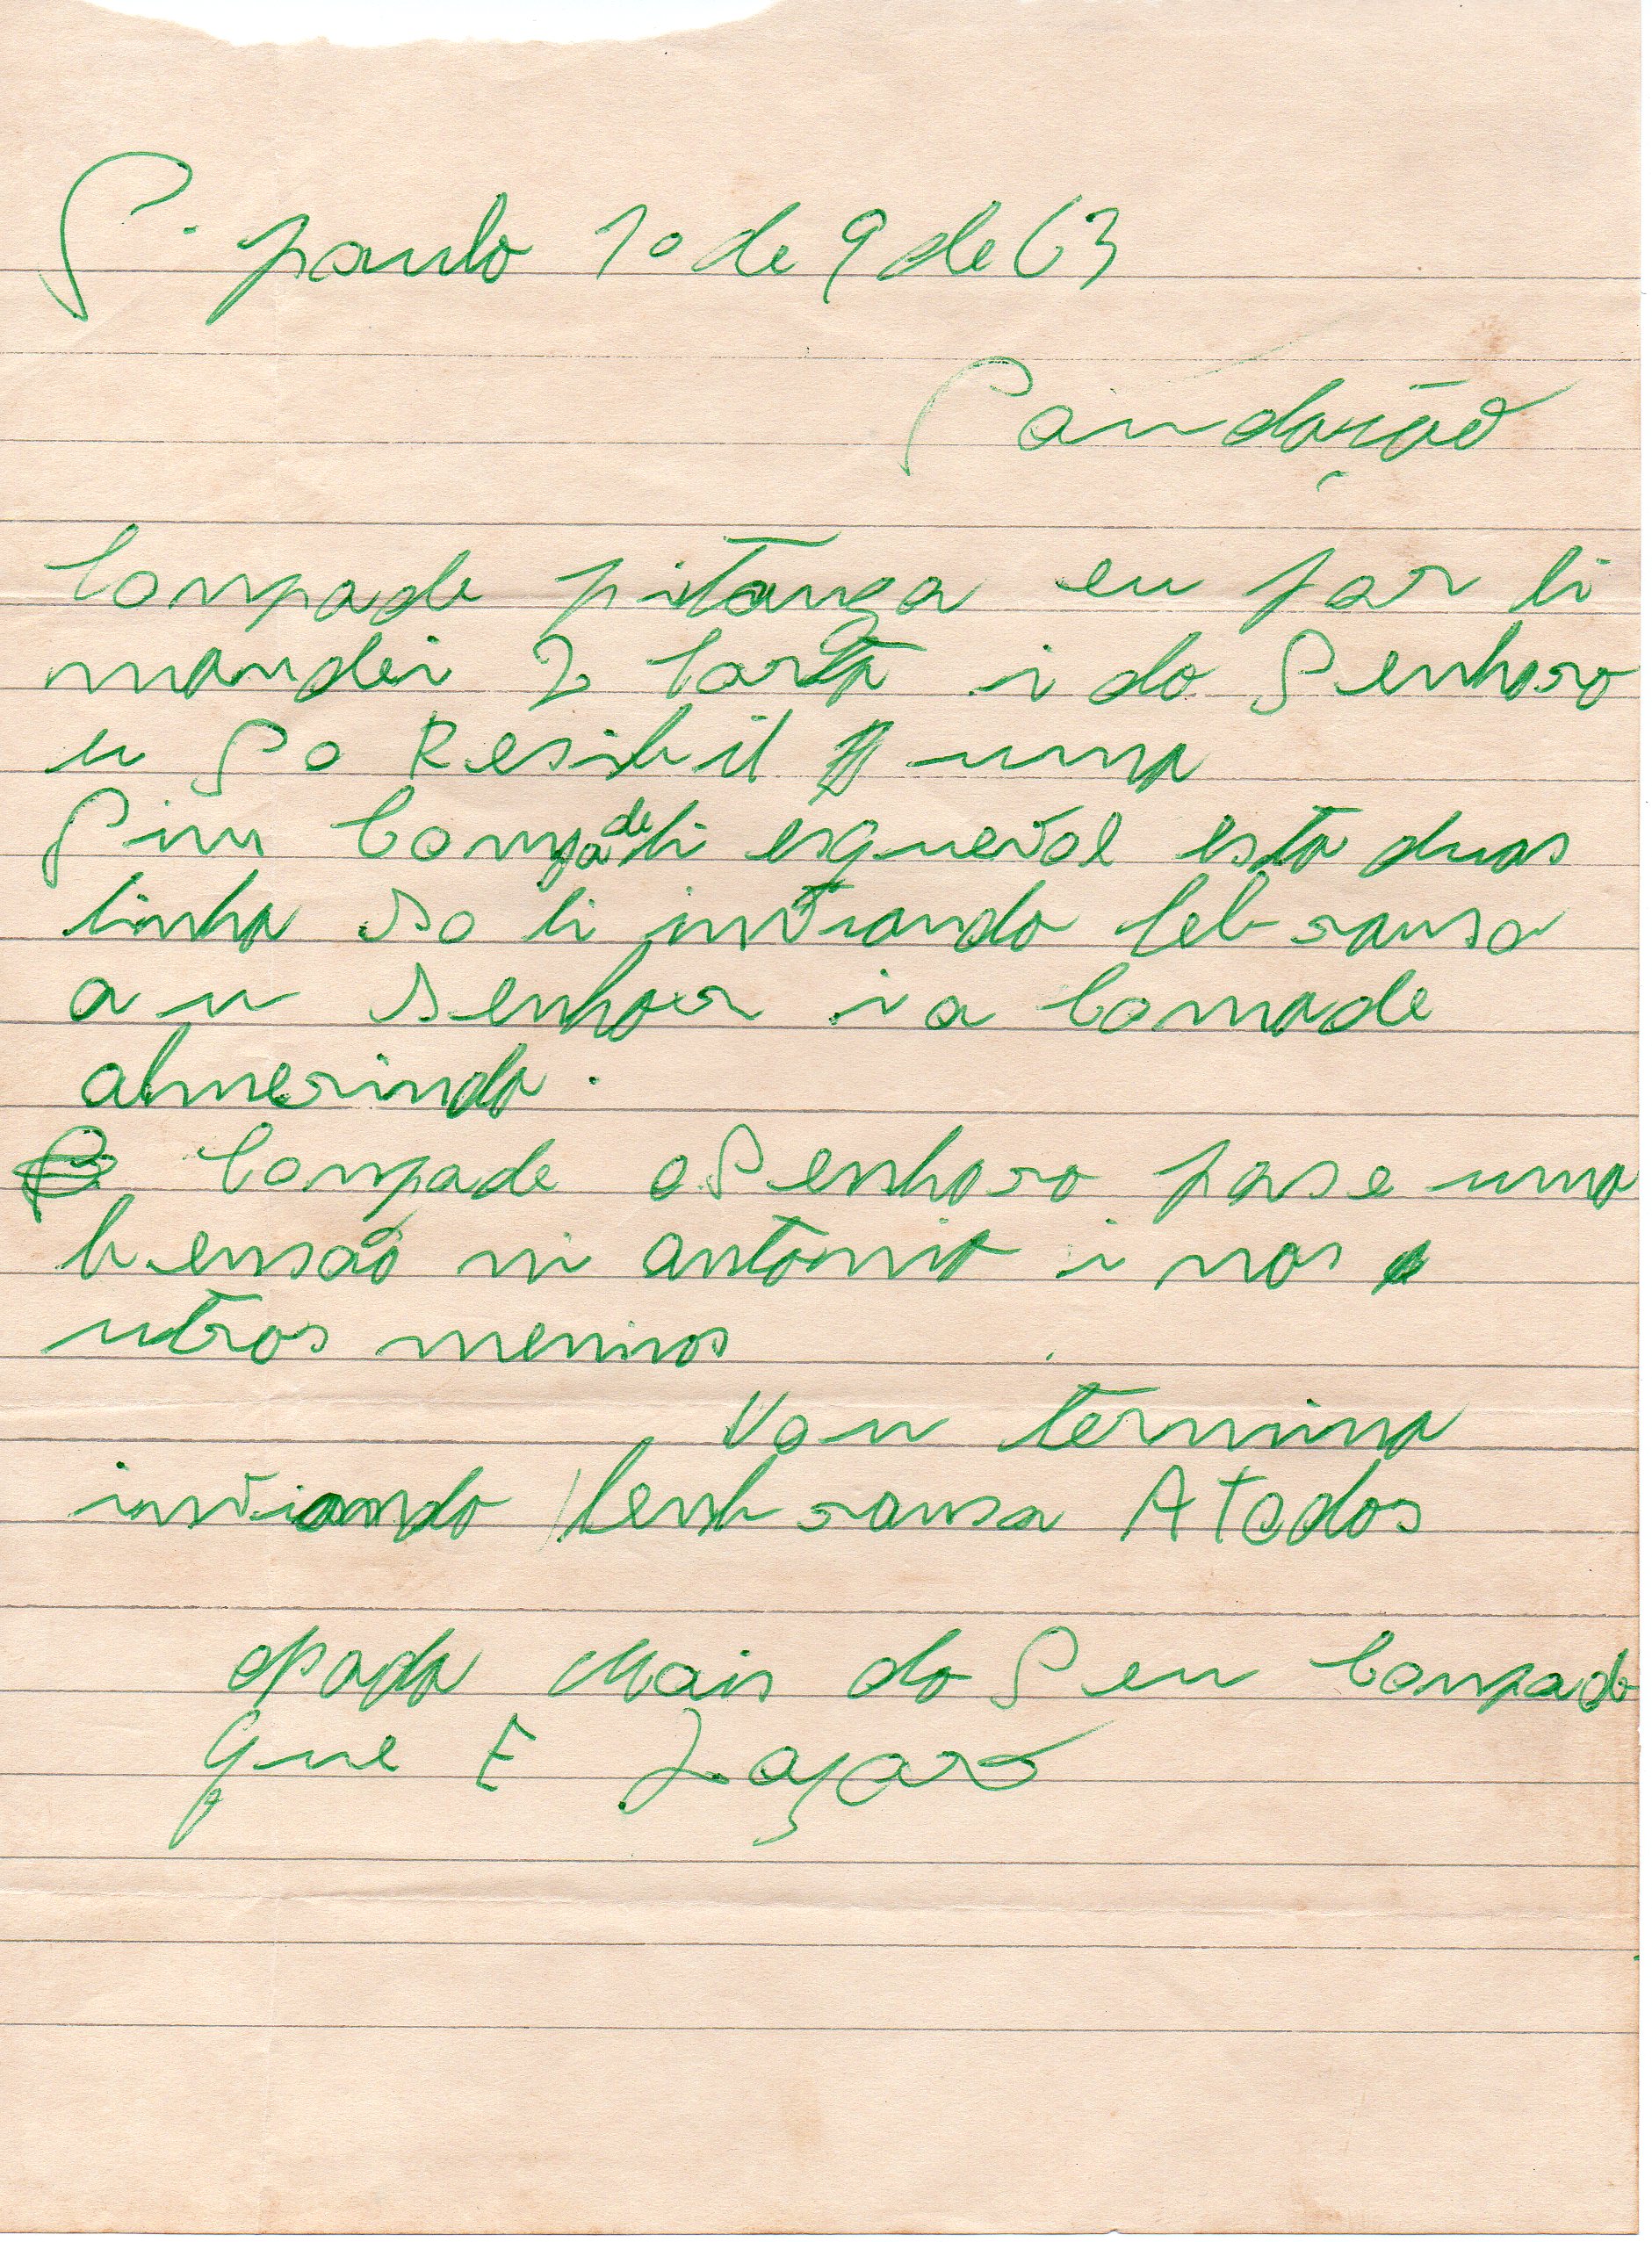 S. paulo 1o de 9 de 63
Saudação
Compade pitanga eu jar li
mandei 2 Carta i do Senhoro
u So Resibil uma
Sim Compade li esqueval esta duas
linha so li inviando lebransa
a u senhor i a Comade
almerinda.
Compade o Senhoro pase uma
bensão ni antonio i nos
utros meninos
Vou termina
inviando lenbransa A todos
Nada Mais do Seu Compade
que E Lazaro